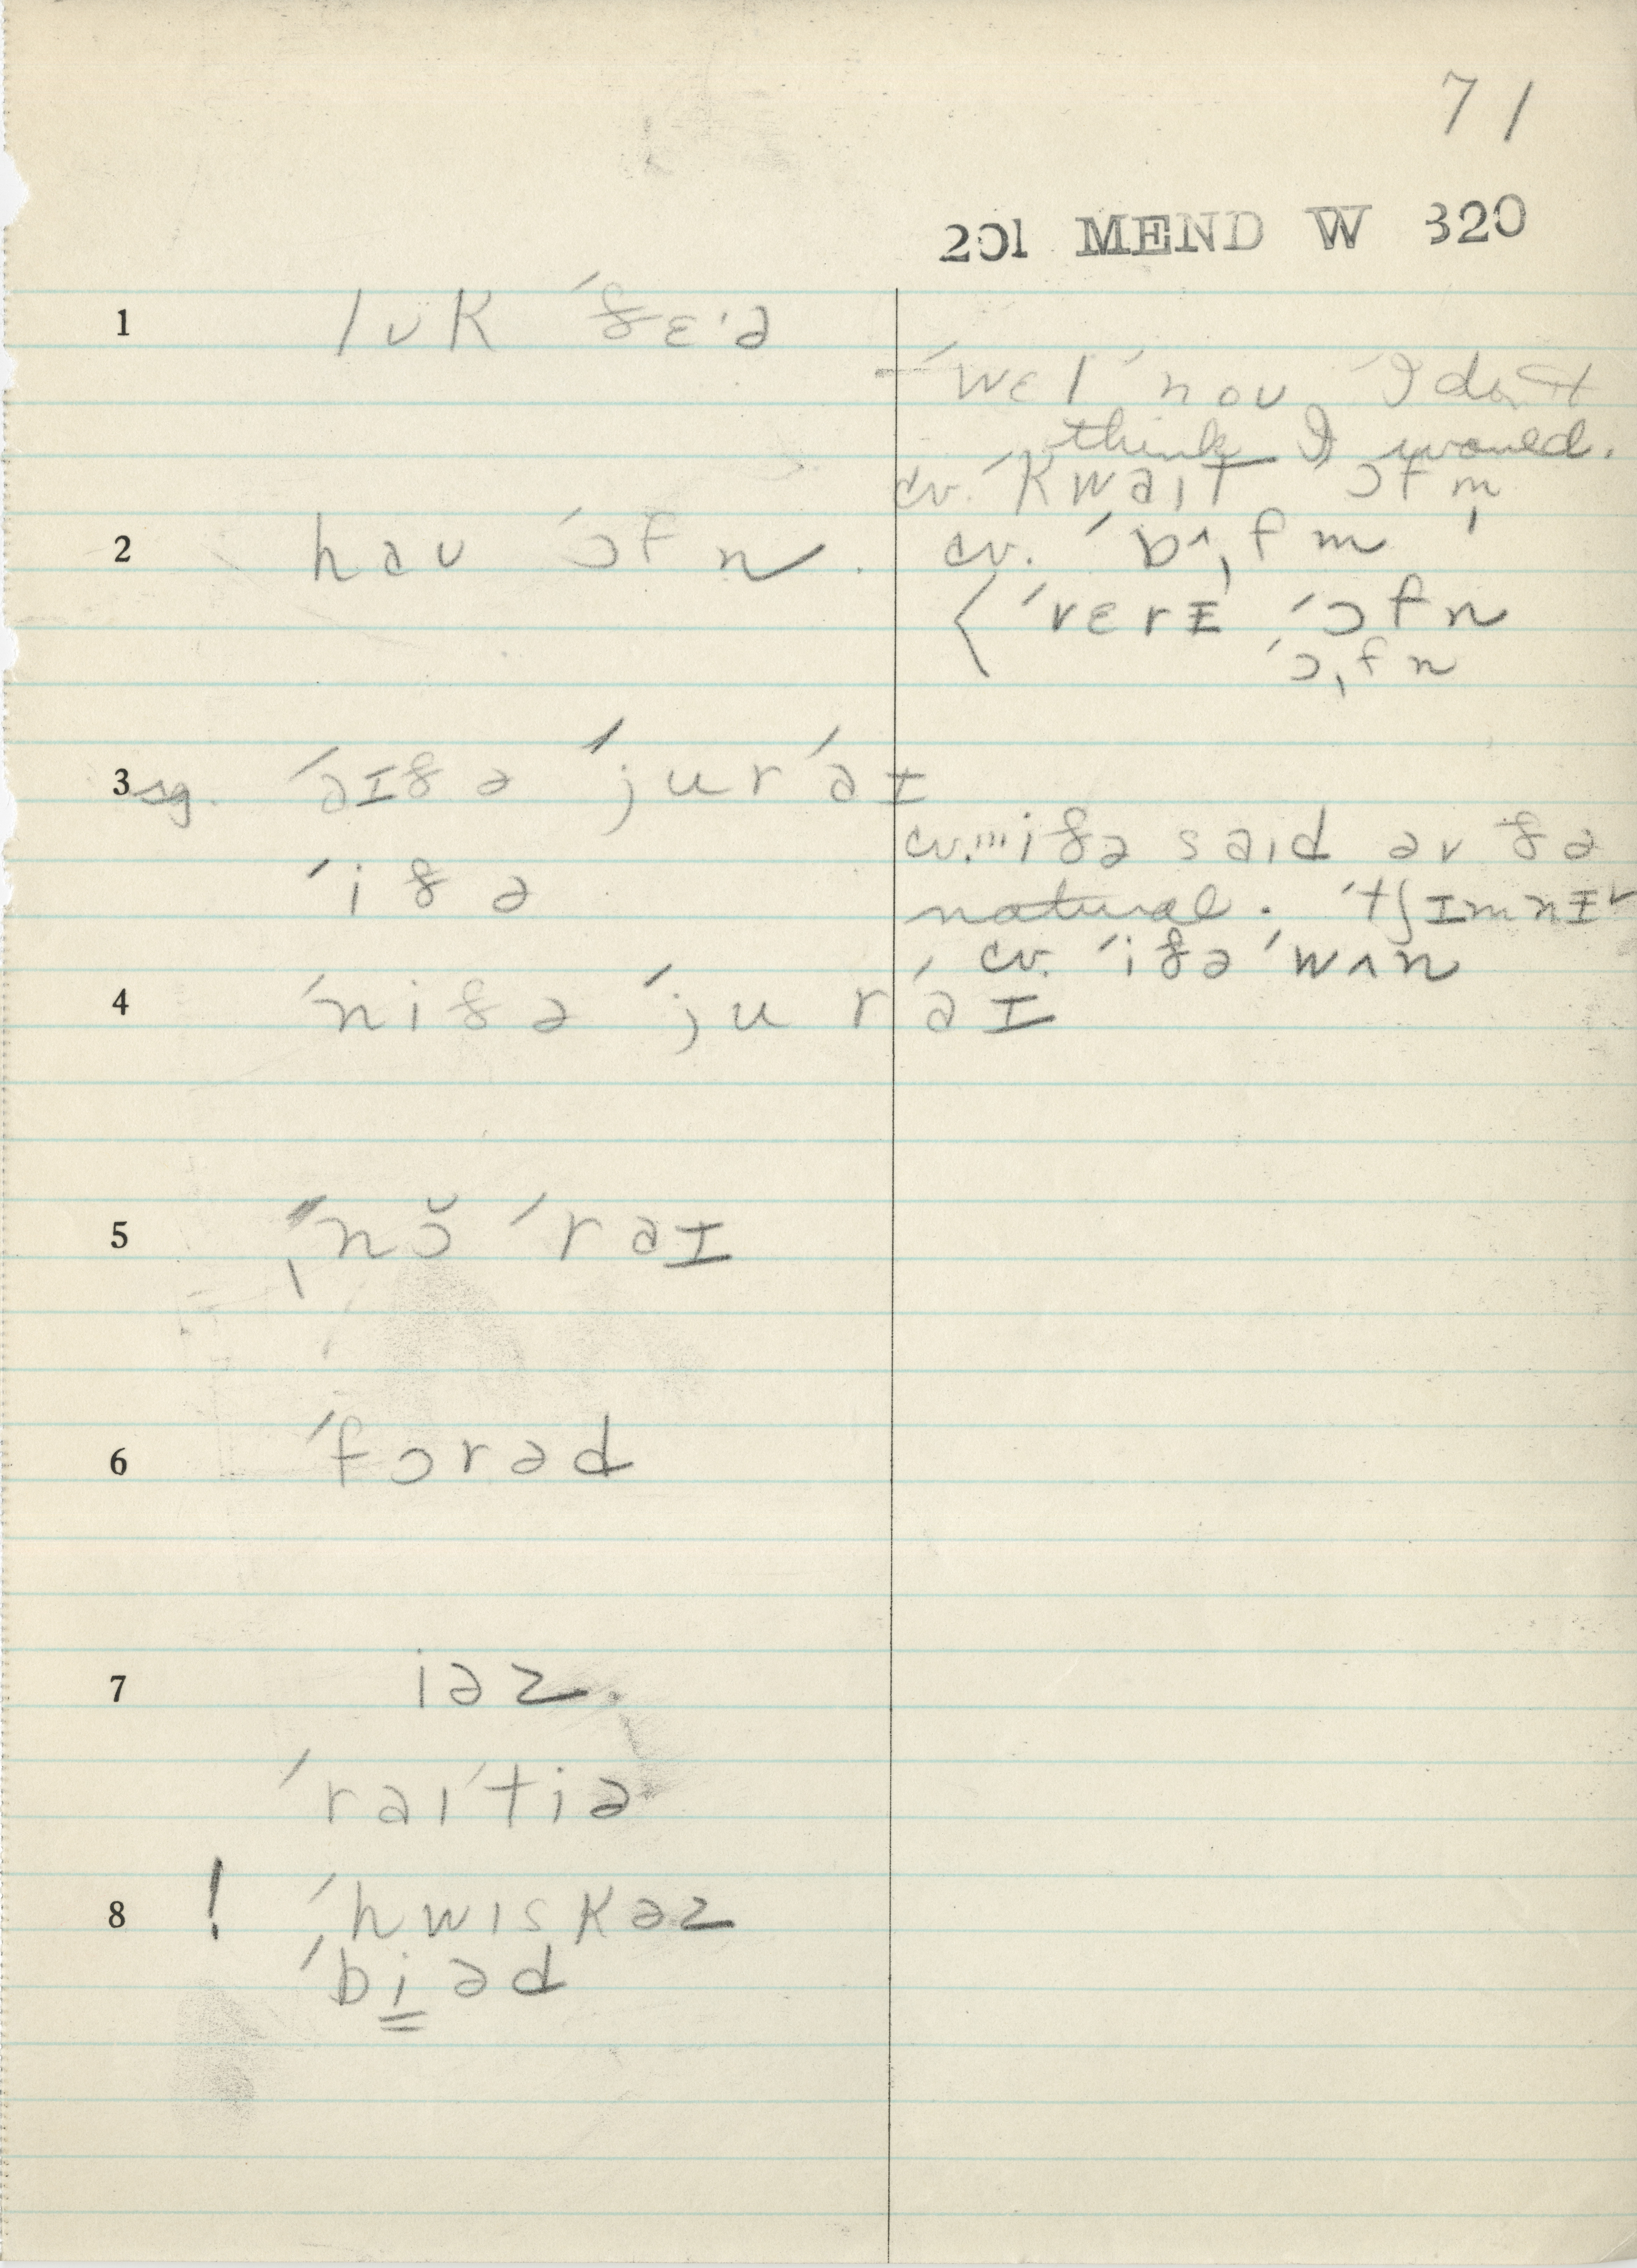 71
201 MEND W 320
1 lʊk ˈðɛˑə
ˈwɛl ˈnoʊ, ˈI don't
think I would.
cv. ˈkwaɪt ɔfm̩
2 haʊ ˈɔfn. cv. ˈbʌˌfm
ˈvɛrɪ ˈɔfn
ˈɔˌfn
3 sg. ˈaɪðə ˈjurˈaɪ
cv. "ˈiðə said əv ðə
ˈiðə
natural. ˈtʃɪmnɪ
cv. ˈiðə ˈwʌn
4 ˈniðə ˈju rˈaɪ
5 ˈnɔ̆ ˈraɪ
6 ˈfɔrəd
7 iəz.
ˈraɪˈtiə
8 ! ˈhwɪskəz
ˈbiəd